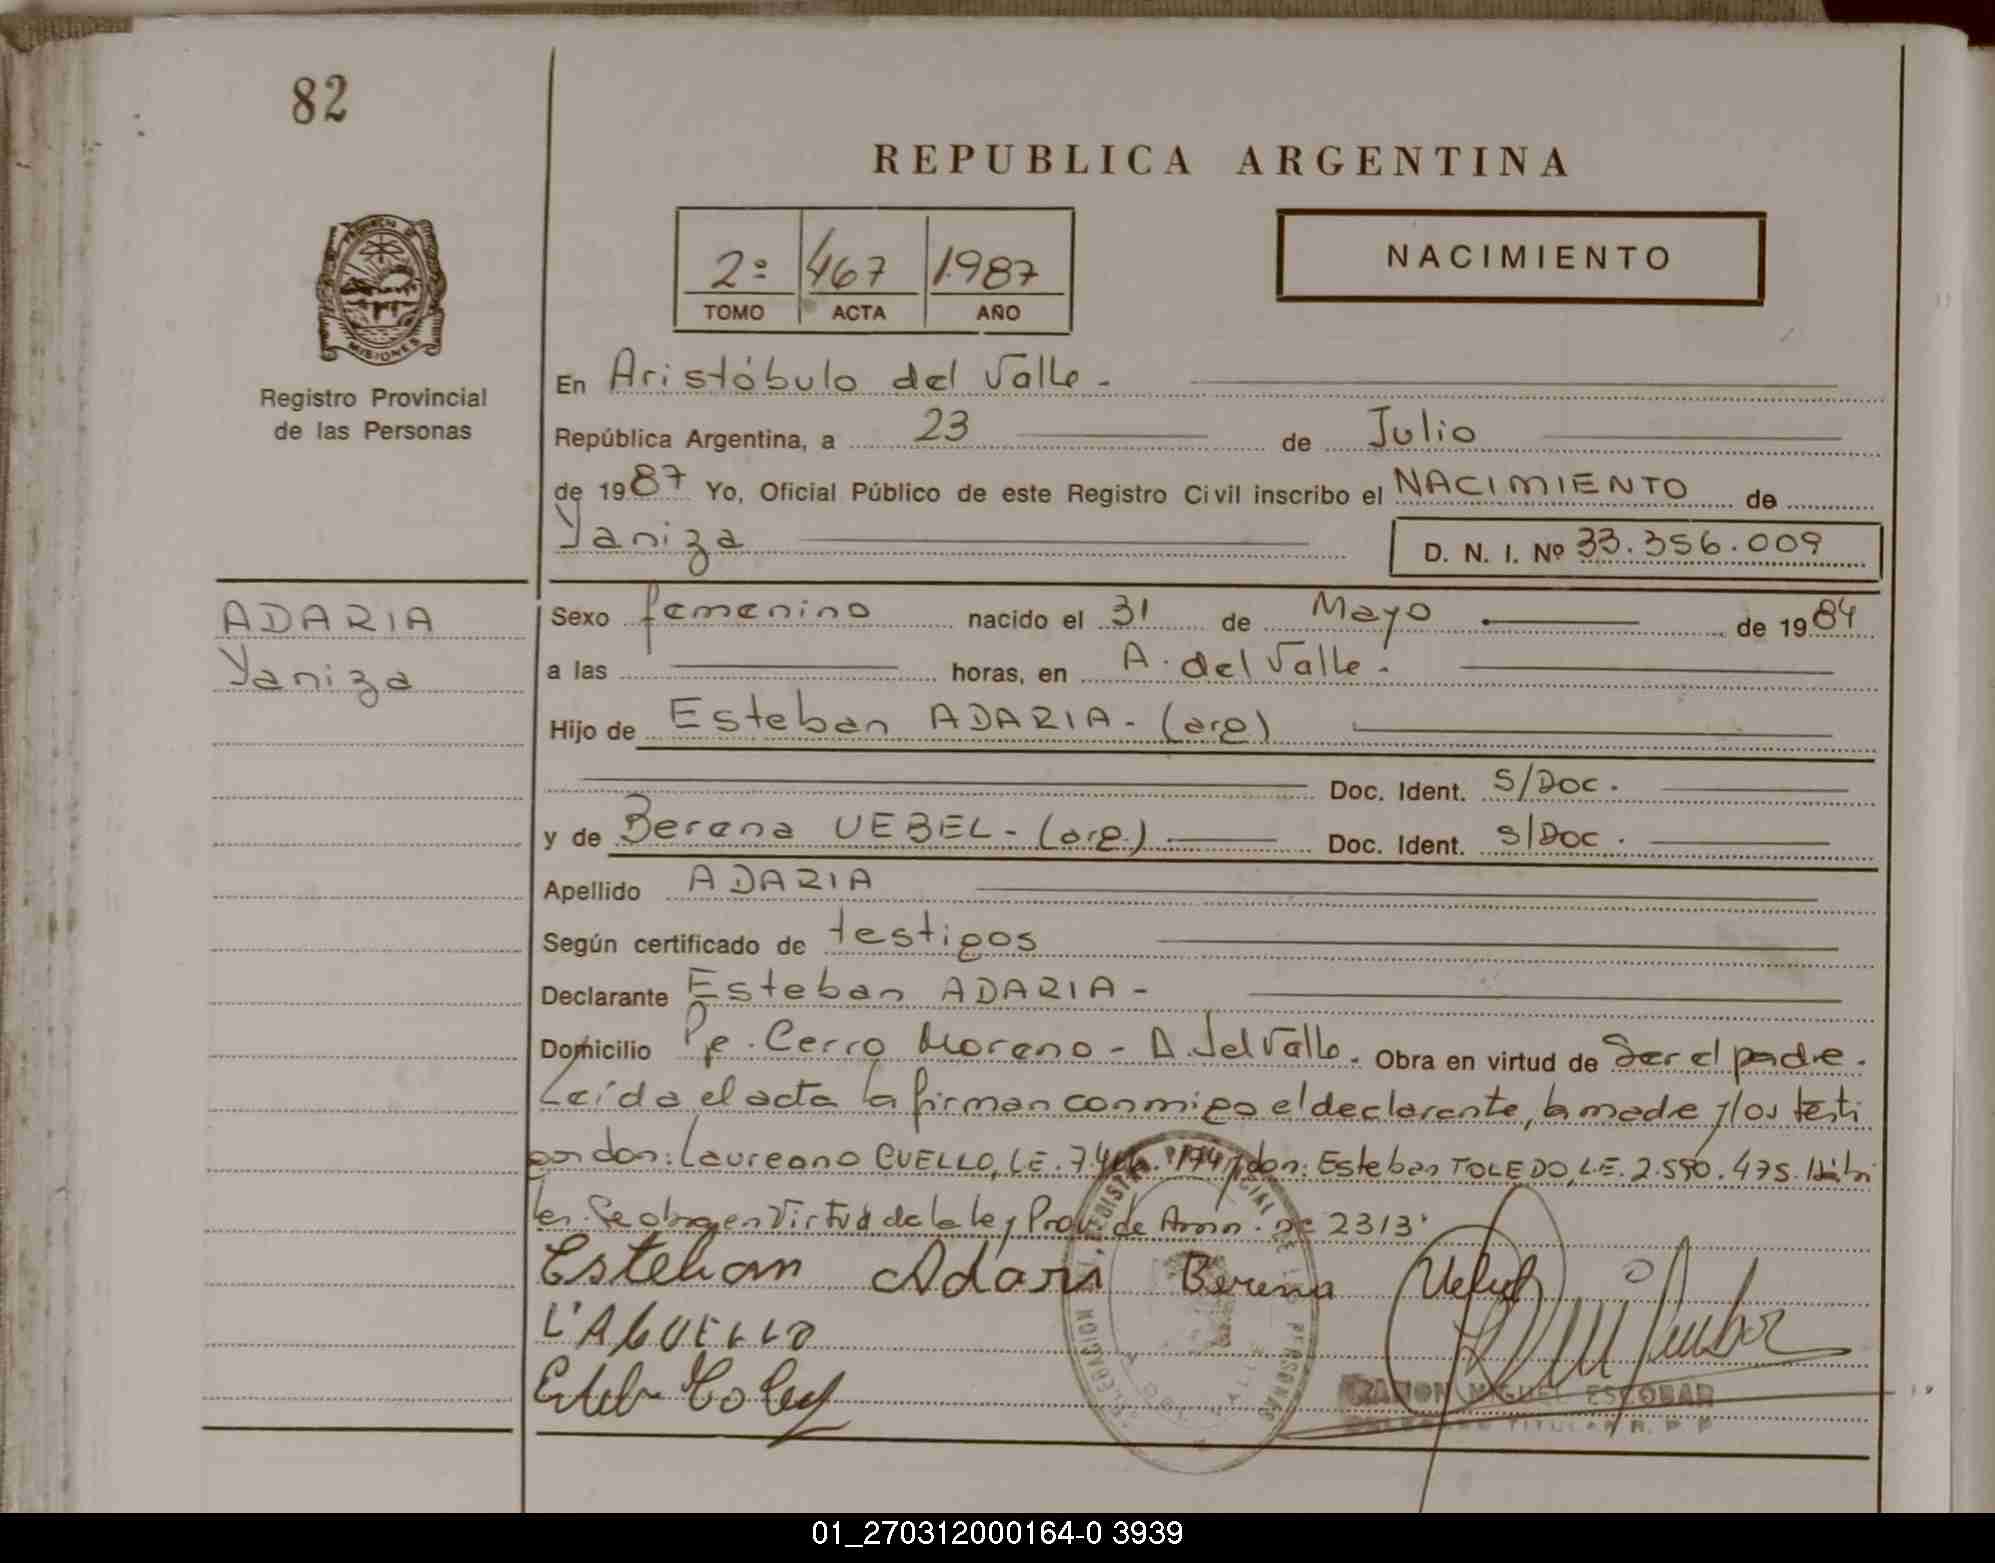 82
REPUBLICA ARGENTINA
PROVINCIA DE MISIONES
Registro Provincial
de las Personas
2º 467 1987
TOMO ACTA AÑO
NACIMIENTO
En Aristóbulo del Valle.
República Argentina, a 23 de Julio
de 1987 Yo, Oficial Público de este Registro Civil inscribo el NACIMIENTO de
Yaniza D. N. I. Nº 33.356.009
ADARIA
Yaniza
Sexo femenino nacido el 31 de Mayo de 1984
a las horas, en A. del Valle.
Hijo de Esteban ADARIA - (arg)
Doc. Ident. S/Doc.
y de Berena UEBEL - (arg.) Doc. Ident. S/Doc.
Apellido ADARIA
Según certificado de testigos
Declarante Esteban ADARIA -
Domicilio Pje. Cerro Moreno - A. del Valle. Obra en virtud de Ser el padre.
Leída el acta la firman conmigo el declarante, la madre y los testi
gos don: Laureano CUELLO, L.E. y don: Esteban TOLEDO, L.E. 2.590.475. Hábi
les. Se obra en Virtud de la ley Prov. de Amn. nº 2313.
Esteban Adari Berena Uebel
L'A CUELLO
RAMON MIGUEL ESCOBAR
DELEGADO TITULAR R. P. P.
01_270312000164-0 3939